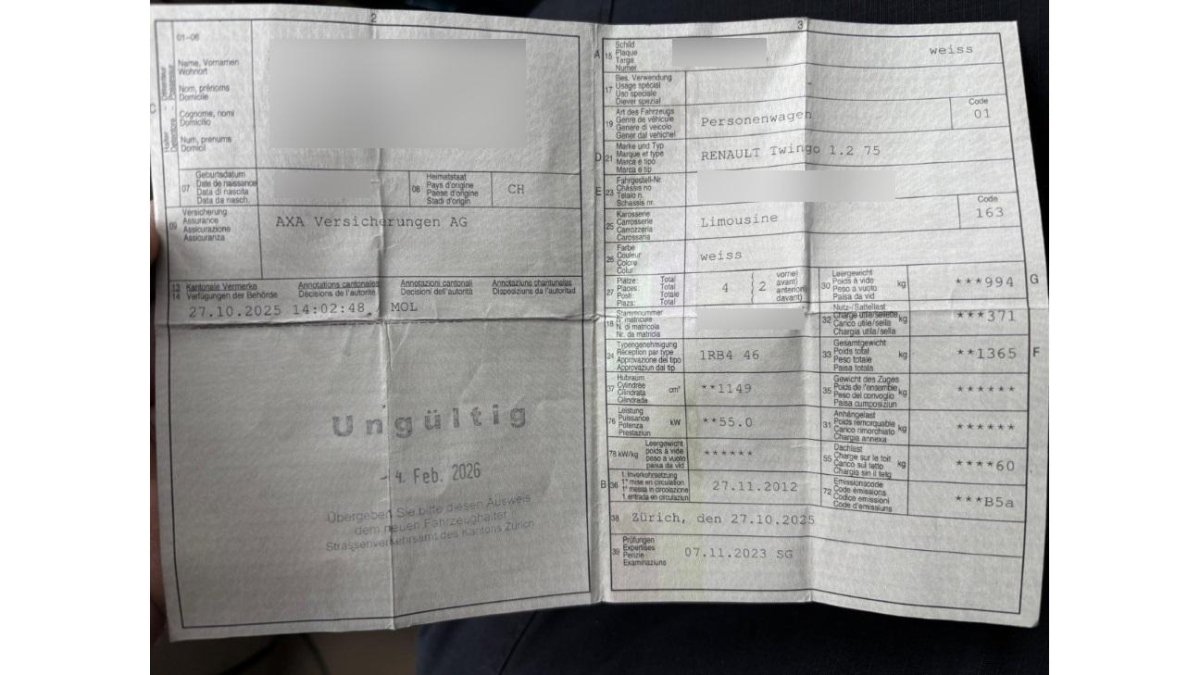 2
01-06
Name, Vornamen
Wohnort
Nom, prénoms
Domicile
Cognome, nomi
Domicilio
Num, prenums
Domicil
C
07
Geburtsdatum
Date de naissance
Data di nascita
Data da nasch.
08
Heimatstaat
Pays d'origine
Paese d'origine
Stadi d'origin
CH
09
Versicherung
Assurance
Assicurazione
Assicuranza
AXA Versicherungen AG
13
14
Kantonale Vermerke
Verfügungen der Behörde
Annotations cantonales
Décisions de l'autorité
Annotazioni cantonali
Decisioni dell'autorità
Annotaziuns chantunalas
Disposiziuns da l'autoritad
27.10.2025 14:02:48, MOL
Ungültig
- 4. Feb. 2026
Übergeben Sie bitte diesen Ausweis
dem neuen Fahrzeughalter
Strassenverkehrsamt des Kantons Zürich
3
A
15
Schild
Plaque
Targa
Numer
weiss
17
Bes. Verwendung
Usage spécial
Uso speciale
Diever spezial
19
Art des Fahrzeugs
Genre de véhicule
Genere di veicolo
Gener dal vehichel
Personenwagen
Code
01
D
21
Marke und Typ
Marque et type
Marca e tipo
Marca e tip
RENAULT Twingo 1.2 75
E
23
Fahrgestell-Nr.
Châssis no
Telaio n.
Schassis nr.
25
Karosserie
Carrosserie
Carrozzeria
Carossaria
Limousine
Code
163
26
Farbe
Couleur
Colore
Colur
weiss
27
Plätze: Total
Places: Total
Posti: Totale
Plazs: Total
4
2
vorne)
avant)
anteriori)
davant)
30
Leergewicht
Poids à vide
Peso a vuoto
Paisa da vid
kg
***994
G
18
Stammnummer
N° matricule
N. di matricola
Nr. da matricla
32
Nutz-/Sattellast
Charge utile/sellette
Carico utile/sella
Chargia utila/sella
kg
***371
24
Typengenehmigung
Réception par type
Approvazione del tipo
Approvaziun dal tip
1RB4 46
33
Gesamtgewicht
Poids total
Peso totale
Paisa totala
kg
**1365
F
37
Hubraum
Cylindrée
Cilindrata
Cilindrada
cm³
**1149
35
Gewicht des Zuges
Poids de l'ensemble
Peso del convoglio
Paisa cumposiziun
kg
******
76
Leistung
Puissance
Potenza
Prestaziun
kW
**55.0
31
Anhängelast
Poids remorquable
Carico rimorchiato
Chargia annexa
kg
******
78 kW/kg
Leergewicht
poids à vide
peso a vuoto
paisa da vid
******
55
Dachlast
Charge sur le toit
Carico sul tetto
Chargia sin il tetg
kg
****60
B
36
1. Inverkehrsetzung
1re mise en circulation
1a messa in circolazione
1. entrada en circulaziun
27.11.2012
72
Emissionscode
Code émissions
Codice emissioni
Code d'emissiuns
***B5a
38
Zürich, den 27.10.2025
39
Prüfungen
Expertises
Perizie
Examinaziuns
07.11.2023 SG